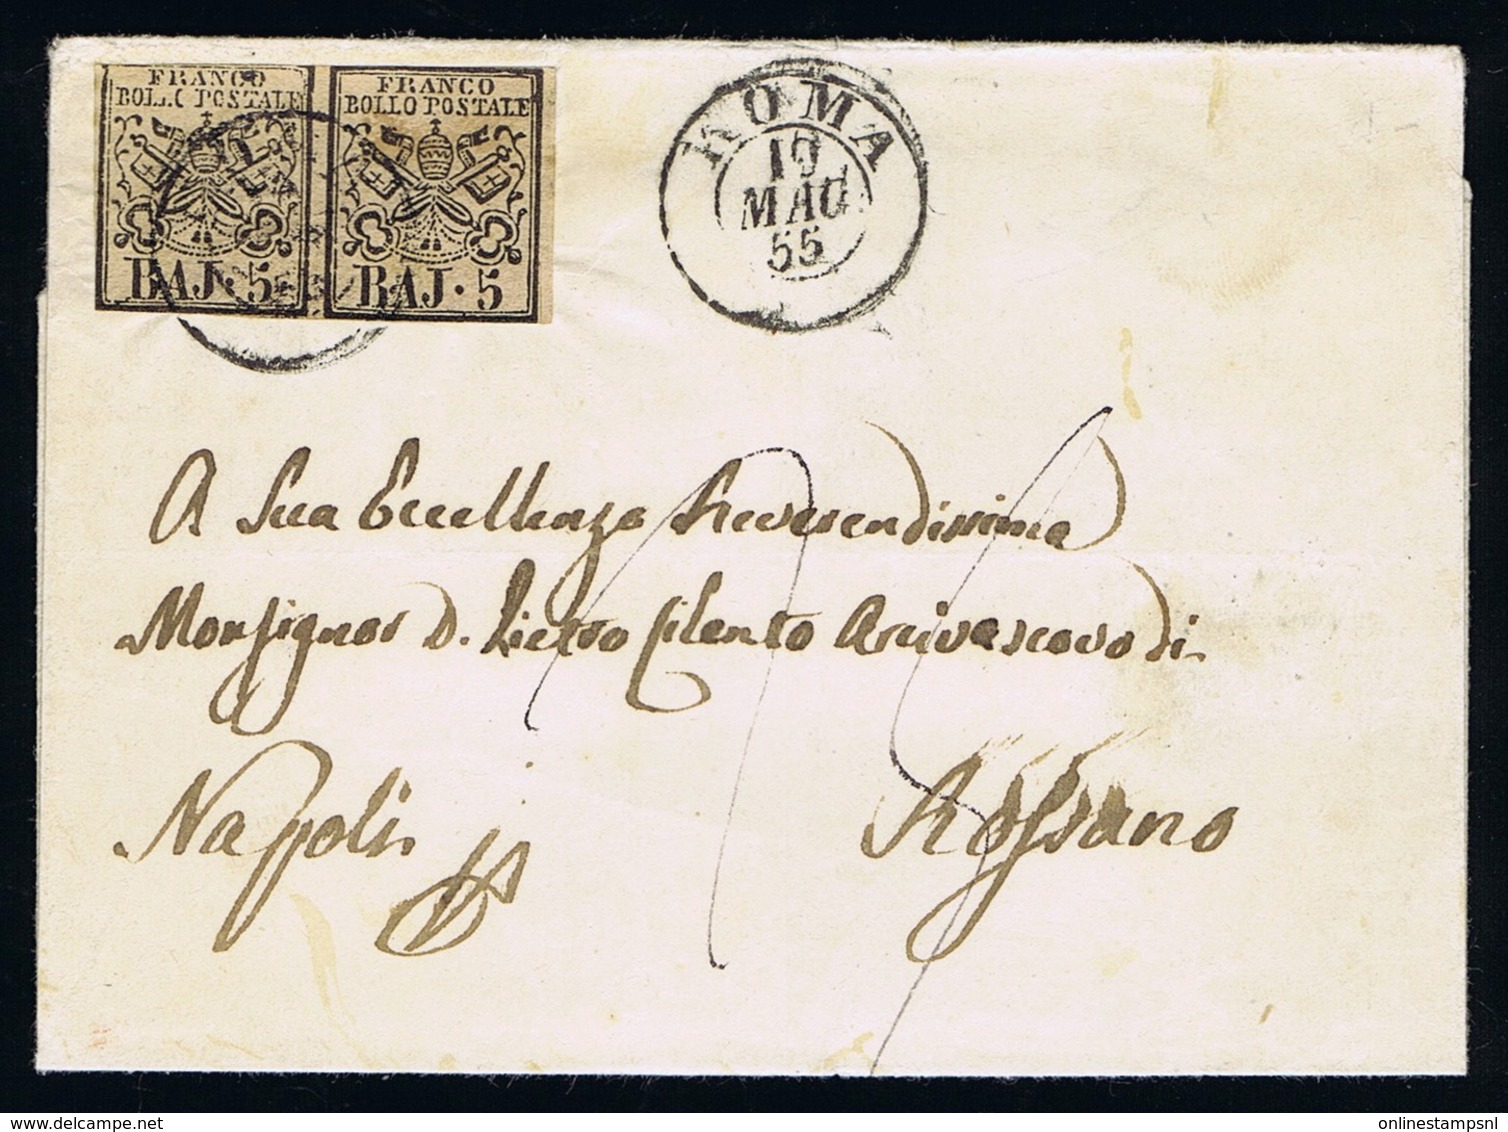 FRANCO
BOLLO POSTALE
BAJ. 5
FRANCO
BOLLO POSTALE
BAJ. 5
ROMA
MAG
55
A Sua Eccellenza Reverendissima
Monsignor D. Pietro Cilento Arcivescovo di
Napoli Rossano
onlinestampsnl